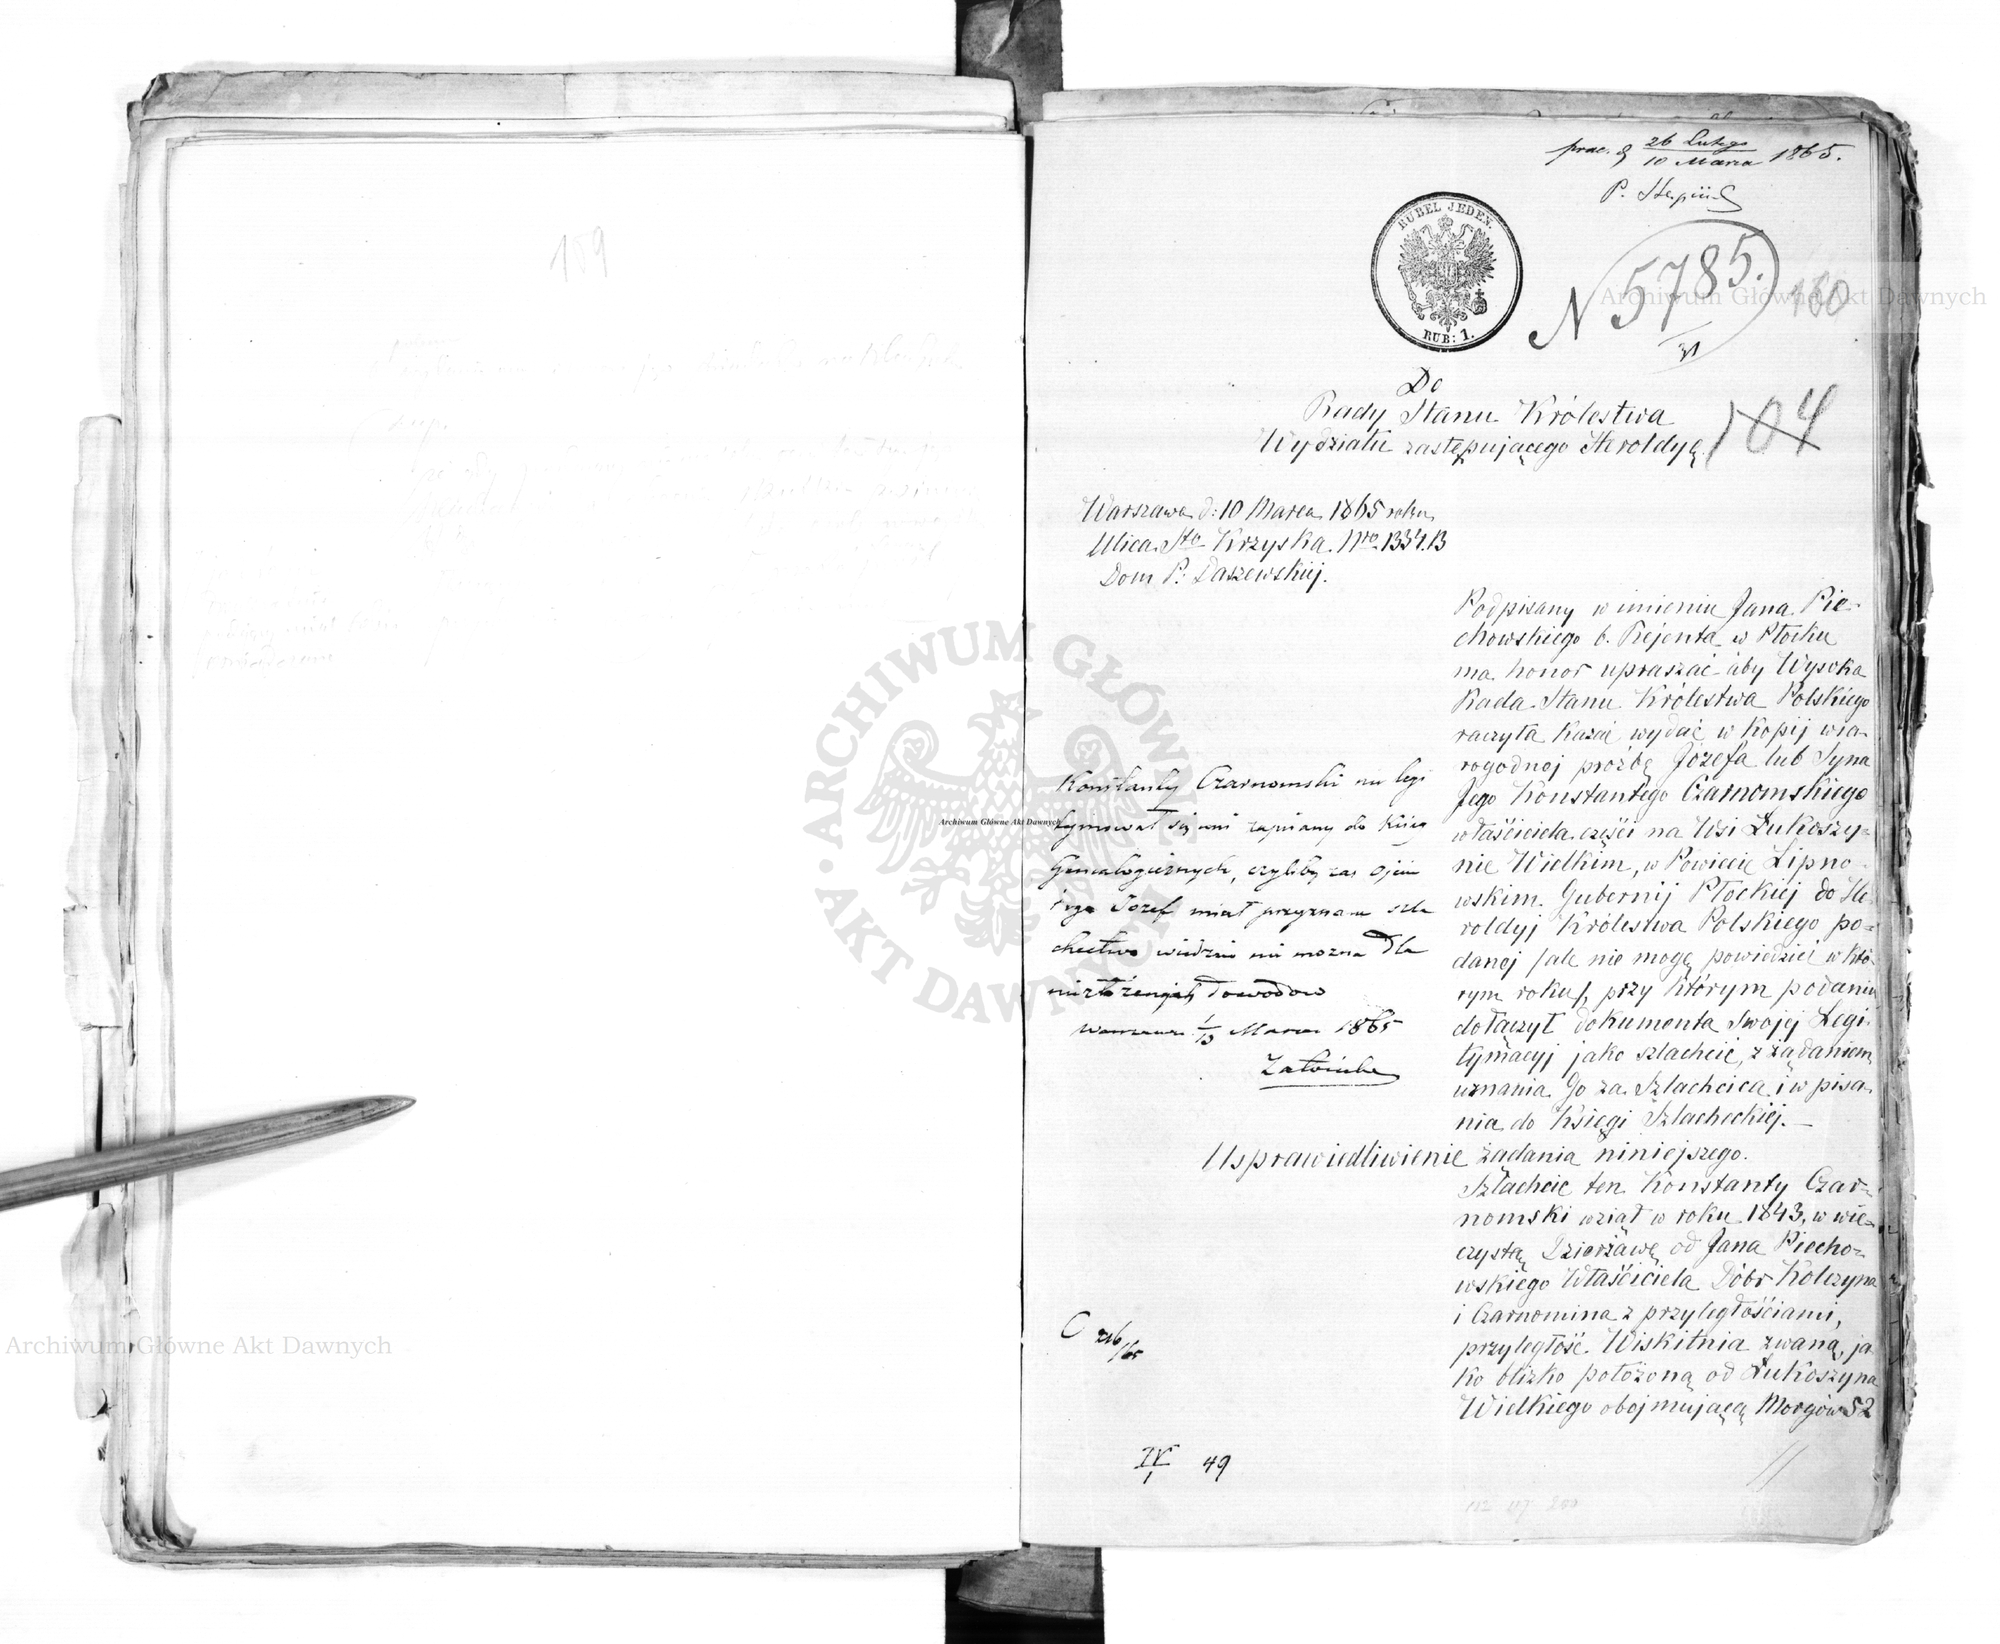 109
prae. d 26 Lutego 1865.
10 Marca
RUBEL JEDEN.
RUB: 1.
N 5785.
160
Do
Rady Stanu Królestwa
Wydziału zastępującego Heroldyę
104
Warszawa d: 10 Marca 1865 roku
Ulica Sto Krzyska Nro 1334.B
Dom P: Daszewskiej.
Podpisany w imieniu Jana Pie-
chowskiego b. Rejenta w Płocku
ma honor upraszać aby Wysoka
Rada Stanu Królestwa Polskiego
raczyła kazać wydać w Kopij wia-
rogodnej prośbę Józefa lub Syna
Jego Konstantego Czarnomskiego
właściciela części na Wsi Łukoszy-
nie Wielkim, w Powiecie Lipno-
wskim Gubernij Płockiej do He-
roldyj Królestwa Polskiego po-
danej /ale nie mogę powiedzieć w któ-
rym roku/, przy którym podaniu
dołączył dokumenta swojej Legi-
tymacyj jako szlachcic, z żądaniem
uznania Go za Szlachcica i wpisa-
nia do Księgi Szlacheckiej.—
Konstanty Czarnomski nie legi
tymował się ani zapisany do Ksiąg
Genealogicznych, czyliby zaś Ojciec
tego Józef miał przyznane szla
chectwo wiedzieć nie można dla
niezłożenia dowodów
Warszawa 1/13 Marca 1865
Usprawiedliwienie żądania niniejszego.
Szlachcic ten Konstanty Czar-
nomski wziął w roku 1843, w wie-
czystą Dzierżawę od Jana Piecho-
wskiego Właściciela Dóbr Kolczyna
i Czarnomina z przyległościami,
przyległość Wiskitnia zwaną, ja
ko blizko położoną od Łukoszyna
Wielkiego obejmującą Morgów 52
IV/1 49
ARCHIWUM GŁÓWNE AKT DAWNYCH
Archiwum Główne Akt Dawnych
Archiwum Główne Akt Dawnych
Archiwum Główne Akt Dawnych